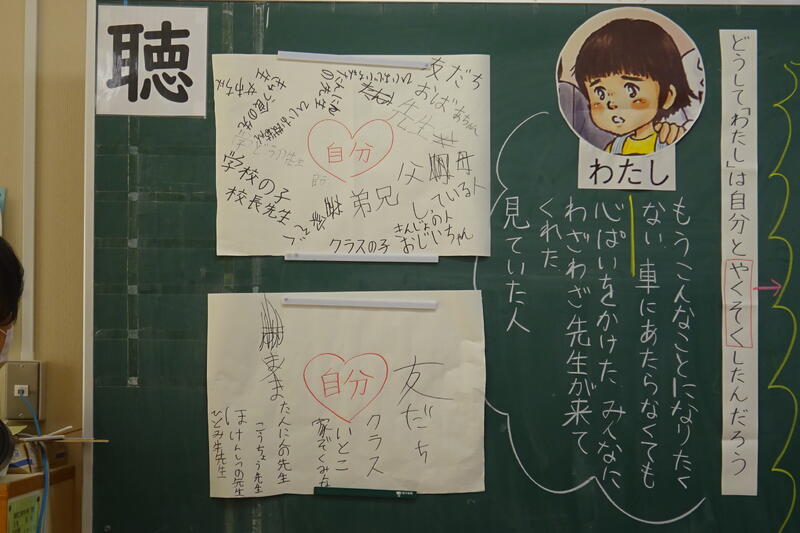 どうして「わたし」は自分とやくそくしたんだろう
わたし
もうこんなことになりたく
ない 車にあたらなくても
心ぱいをかけた みんなに
わざわざ先生が来て
くれた
見ていた人
聴
自分
友だち
おばあちゃん
先生
母
父
弟兄
している人
きんじょの人
おじいちゃん
クラスの子
学校の子
校長先生
自分
友だち
クラス
いとこ
家ぞくみな
たんにんの先生
こうちょう先生
ほけんしつの先生
ひとみ先生